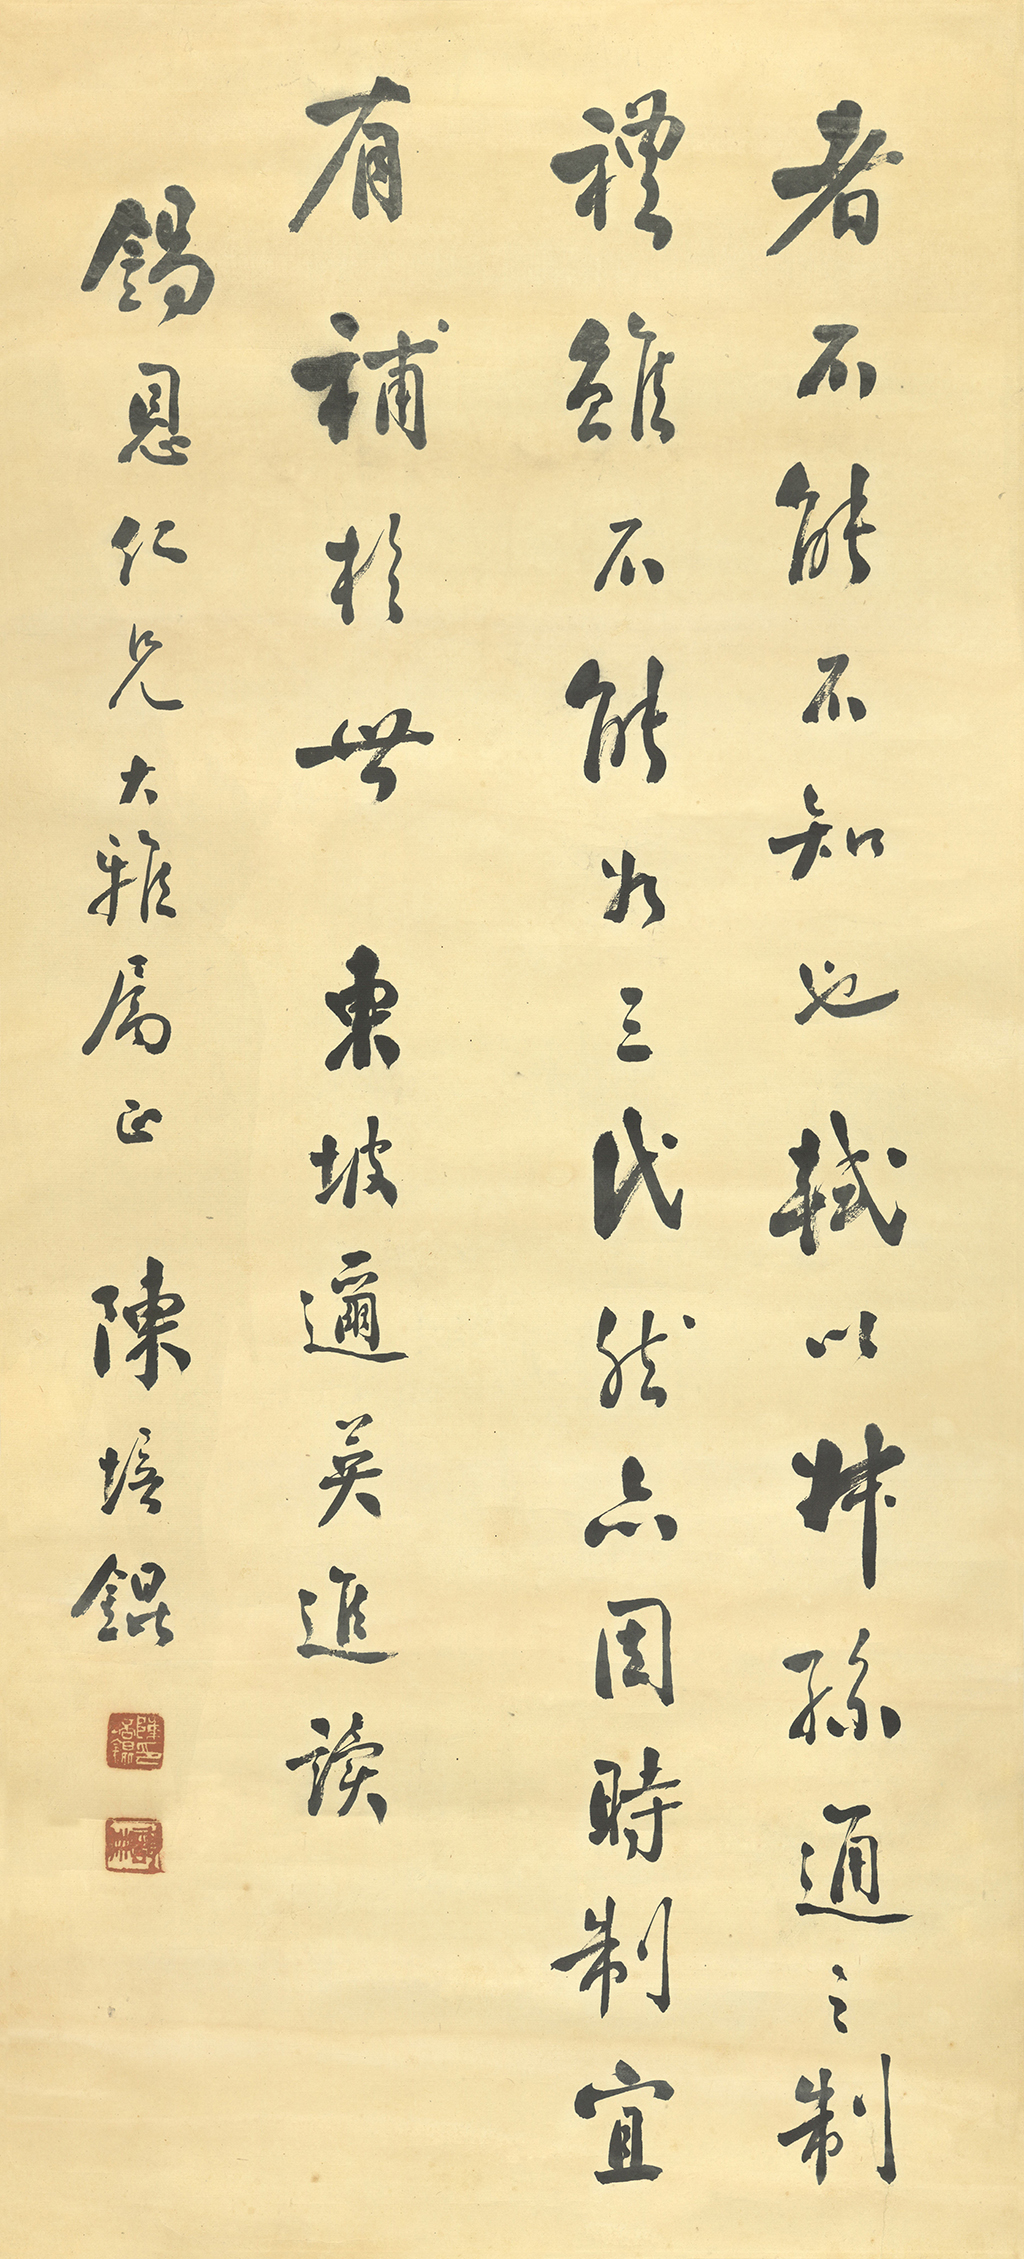 者不能不知也軾以叔孫通之制
禮雖不能如三代然亦因時制宜
有補於世 東坡邇英進讀
錫恩仁兄大雅屬正 陳培錕